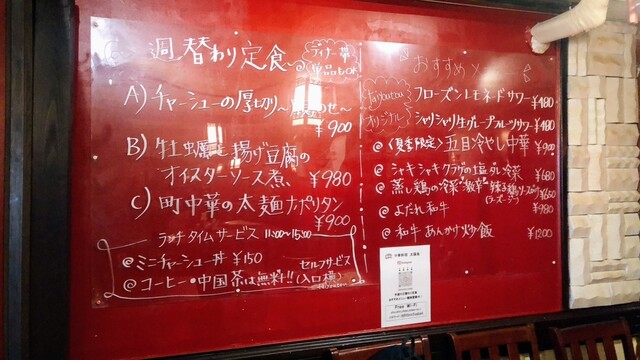 週替わり定食
ディナー帯
単品もOK
A) チャーシューの厚切り
のせ〜
¥900
B) 牡蠣と揚げ豆腐の
オイスターソース煮 ¥980
C) 町中華の太麺ナポリタン
¥900
ランチタイムサービス 11:00〜15:00
@ミニチャーシュー丼 ¥150
セルフサービス
@コーヒー・中国茶は無料!! (入口横)
おすすめメニュー
フローズンレモネードサワー ¥480
オリジナル
シャリシャリ生グレープフルーツサワー ¥480
@〈夏季限定〉五目冷やし中華 ¥900
@シャキシャキクラゲの塩ダレ冷菜 ¥680
@蒸し鶏の冷菜
¥650
@よだれ和牛 ¥980
@和牛あんかけ炒飯 ¥1200
Free Wi-Fi